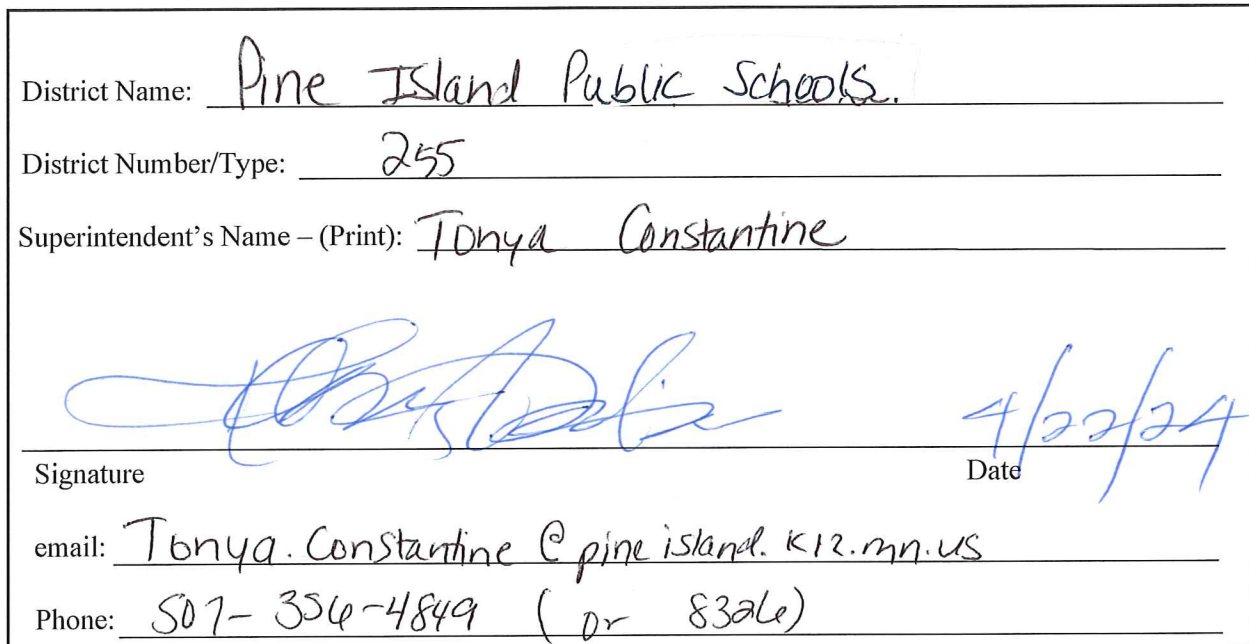 District Name: Pine Island Public Schools.
District Number/Type: 255
Superintendent's Name – (Print): Tonya Constantine
4/22/24
Signature Date
email: Tonya.Constantine@pineisland.k12.mn.us
Phone: 507-356-4849 (or 8326)